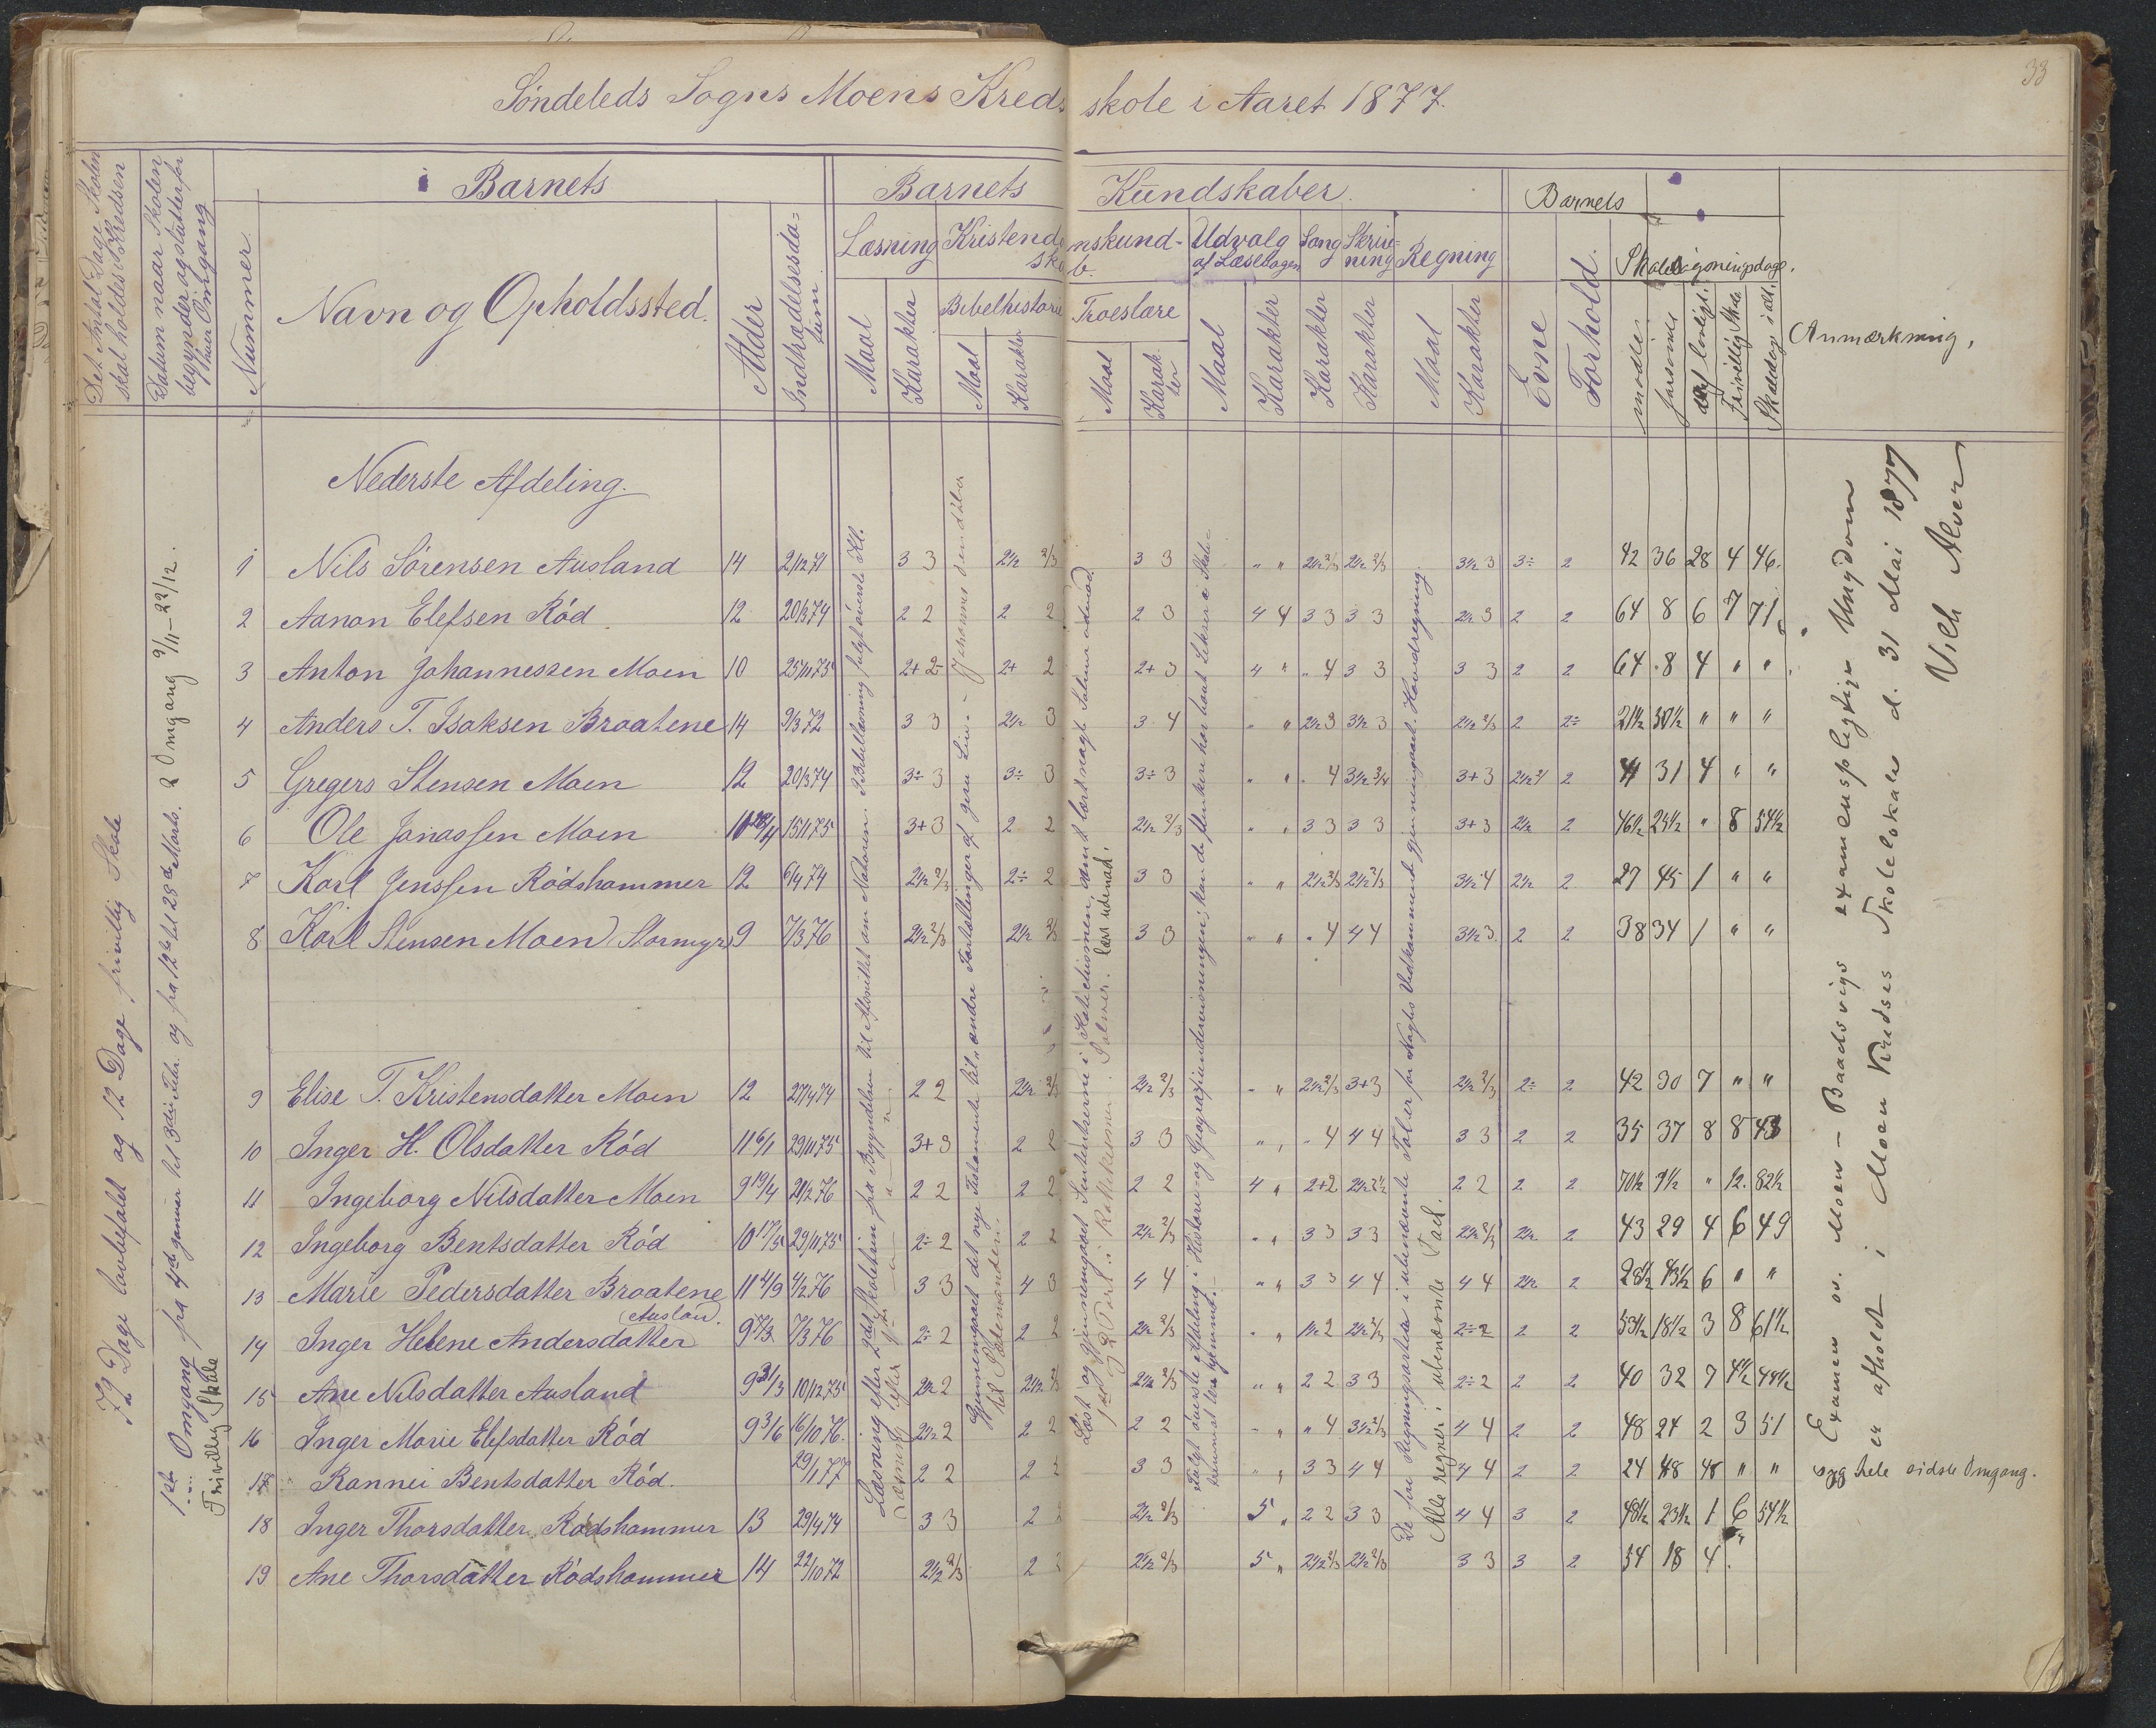 33
Söndeleds Sogns Moens Kredsskole i Aaret 1877.
Det Antal Dage Skolen skal holdes i Kredsen
Datum naar Skolen begynder og slutter for hver Omgang
Nummer
Barnets
Navn og Opholdssted.
Alder
Indtrædelsesdatum
Barnets Kundskaber.
Læsning
Maal
Karakter
Kristendomskundskab.
Bibelhistorie
Maal
Karakter
Troeslære
Maal
Karakter
Udvalg af Læsebogen
Maal
Karakter
Sang
Karakter
Skrivning
Karakter
Regning
Maal
Karakter
Barnets
Evne
Forhold.
Skolesøgning i Dage.
mødte
forsømte
deraf lovligt.
Frivillig Skole
Skoledage i alt.
Anmærkning.
72 Dage lovbefalet og 12 Dage frivillig Skole
1ste Omgang fra 4de Januar til 3die Febr. og fra 12te til 28de Marts. 2 Omgang 9/11–22/12.
Frivillig Skole
Nederste Afdeling.
1 Nils Sörensen Ausland 14 2/12 71 3 3 2½ 2/3 3 3 " " 2½ 2/3 2½ 2/3 3½ 3 3÷ 2 42 36 28 4 46.
2 Aanon Elefsen Röd 12 20/3 74 2 2 2 2 2 3 4 4 3 3 3 3 2½ 3 2 2 64 8 6 7 71
3 Anton Johannessen Moen 10 25/11 75 2+ 2÷ 2+ 2 2+ 3 4 " " 4 3 3 3 3 2 2 64 8 4 " "
4 Anders T. Isaksen Braatene 14 9/3 72 3 3 2½ 3 3 4 " " 2½ 3 3½ 3 2½ 2/3 2 2÷ 21½ 50½ " " "
5 Gregers Stensen Moen 12 20/3 74 3÷ 3 3÷ 3 3÷ 3 " " " 4 3½ 3/4 3+ 3 2½ 2 41 31 4 " "
6 Ole Jonassen Moen 15/11 75 3+ 3 2 2 2½ 2/3 " " 3 3 3 3 3+ 3 2½ 2 46½ 25½ " 8 54½
7 Karl Jenssen Rödshammer 12 6/4 74 2½ 2/3 2÷ 2 3 3 " " 2½ 2/3 2½ 2/3 3½ 4 2½ 2 27 45 1 " "
8 Karl Stensen Moen Stormyr 9 7/3 76 2½ 2/3 2½ 2/3 3 3 " " " 4 4 4 3½ 3 2 2 38 34 1 " "
9 Elise T. Kristensdatter Moen 12 27/4 74 2 2 2½ 2/3 2½ 2/3 " " 2½ 2/3 3+3 2½ 2/3 2÷ 2 42 30 7 " "
10 Inger H. Olsdatter Röd 11 6/1 29/11 75 3+ 3 2 2 3 3 " " " 4 4 4 3 3 2 2 35 37 8 8 43
11 Ingeborg Nilsdatter Moen 9 19/4 21/2 76 2 2 2 2 2 2 4 " 2+2 2½ 2½ 2 2 2 2 70½ 9½ " 12 82½
12 Ingeborg Bentsdatter Röd 10 17/5 29/11 75 2÷ 2 2 2 2½ 2/3 " " 3 3 3 3 2½ 2/3 2½ 2 43 29 4 6 49
13 Marie Pedersdatter Braatene 11 4/9 4/2 76 3 3 4 3 4 4 " " 3 3 4 4 4 4 2½ 2 28½ 43½ 6 " "
14 Inger Helene Andersdatter (Ausland. 9 7/3 7/3 76 2÷ 2 2 2 2½ 2/3 " " 1½ 2 2½ 2/3 2÷2 2 2 53½ 18½ 3 8 61½
15 Ane Nilsdatter Ausland 9 31/3 10/12 75 2½ 2 2½ 2/3 2½ 2/3 " " 2 2 3 3 2÷2 2 2 40 32 9 4½ 44½
16 Inger Marie Elefsdatter Röd 9 3/6 16/10 76. 2½ 2 2 2 2 2 " " " 4 3½ 2/3 4 4 2 2 48 24 2 3 51
17 Rannei Bentsdatter Röd. 29/1 77 2 2 2 2 3 3 " " 3 3 4 4 4 4 2 2 24 48 48 " " syg hele sidste Omgang.
18 Inger Thorsdatter Rödshammer 13 29/4 74 3 3 2 2 2½ 2/3 5 " 2 2 3 3 4 4 3 2 48½ 23½ 1 6 54½
19 Ane Thorsdatter Rödshammer 14 22/10 72 2½ 2/3 2 2 2½ 2/3 5 " 2½ 2/3 2½ 2/3 3 3 3 2 54 18 4
Læsning efter 2det Skoletrin fra Begyndelsen til Afsnittet om Naturen. Bibellæsning fulgt øverste Kl.
Gjennemgaaet det nye Testamente til
Læst og gjennemgaaet Sententserne i Katechismen,
lært udenad.
Fulgt øverste Afdeling i Historie- og Geografiundervisningen;
De fire Regningsarter i ubenævnte Tal
Alle regner i ubenævnte Tal.
Examen ov. Moen – Baadsvigs examenspligtige Ungdom
er afholdt i Moen Kredses Skolelokale d. 31 Mai 1877
Vilh Alver